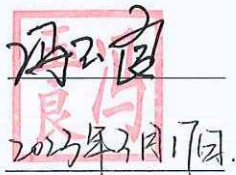 冯玉良
2023年3月17日.